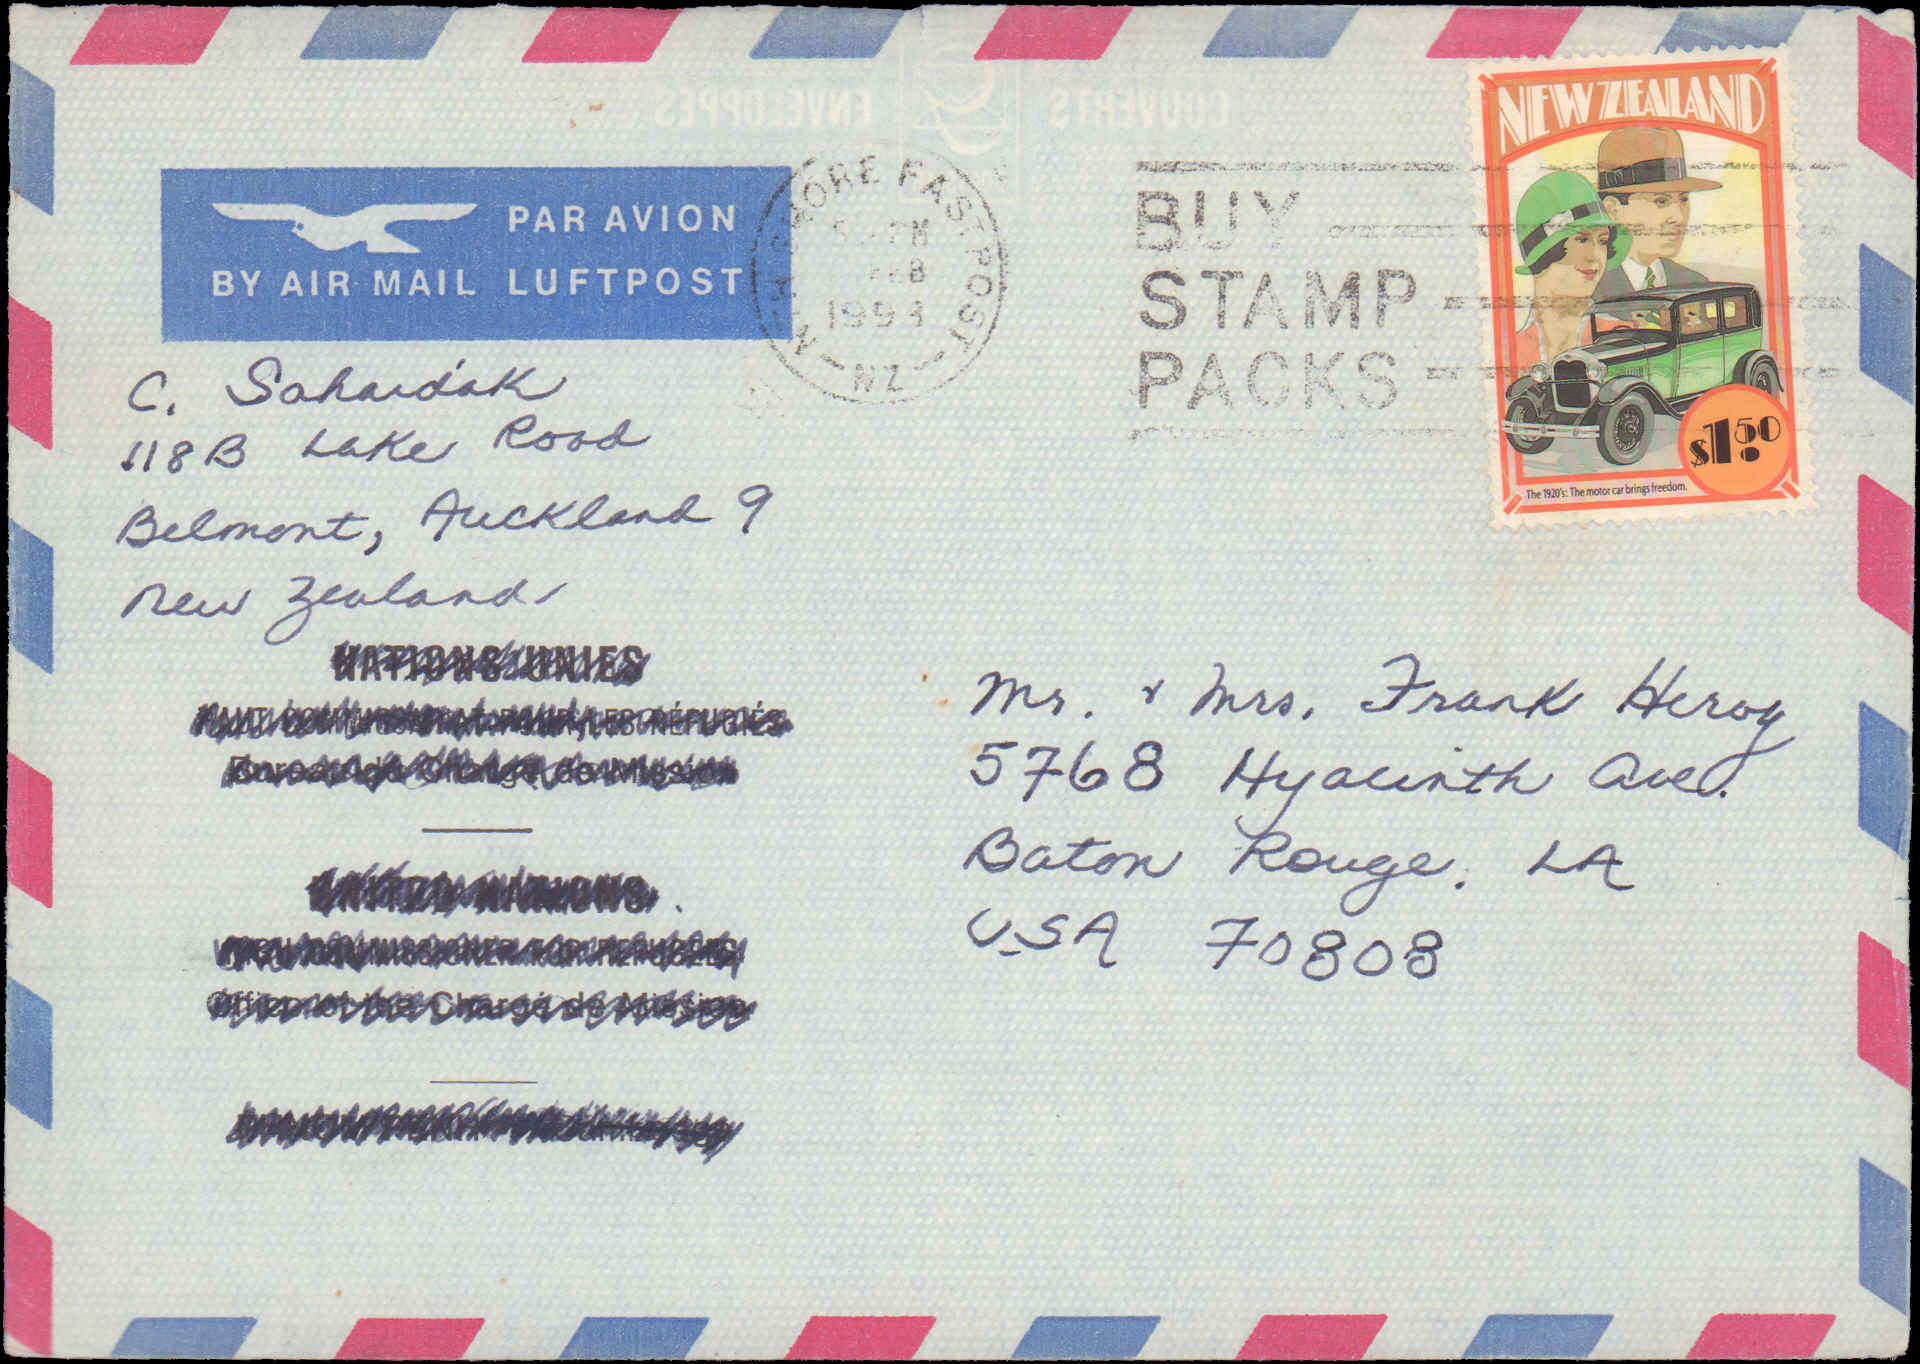 COUVERTS
ENVELOPPES
PAR AVION
BY AIR MAIL LUFTPOST
SHORE FASTPOST
FEB
1993
NZ
BUY
STAMP
PACKS
NEW ZEALAND
$1.50
The 1920's: The motor car brings freedom.
C. Sahaidak
118B Lake Road
Belmont, Auckland 9
New Zealand
NATIONS UNIES
HAUT COMMISSARIAT POUR LES RÉFUGIÉS
Bureau du Chargé de Mission
UNITED NATIONS
HIGH COMMISSIONER FOR REFUGEES
Office of the Chargé de Mission
Mr. & Mrs. Frank Heroy
5768 Hyacinth Ave.
Baton Rouge, LA
USA 70808